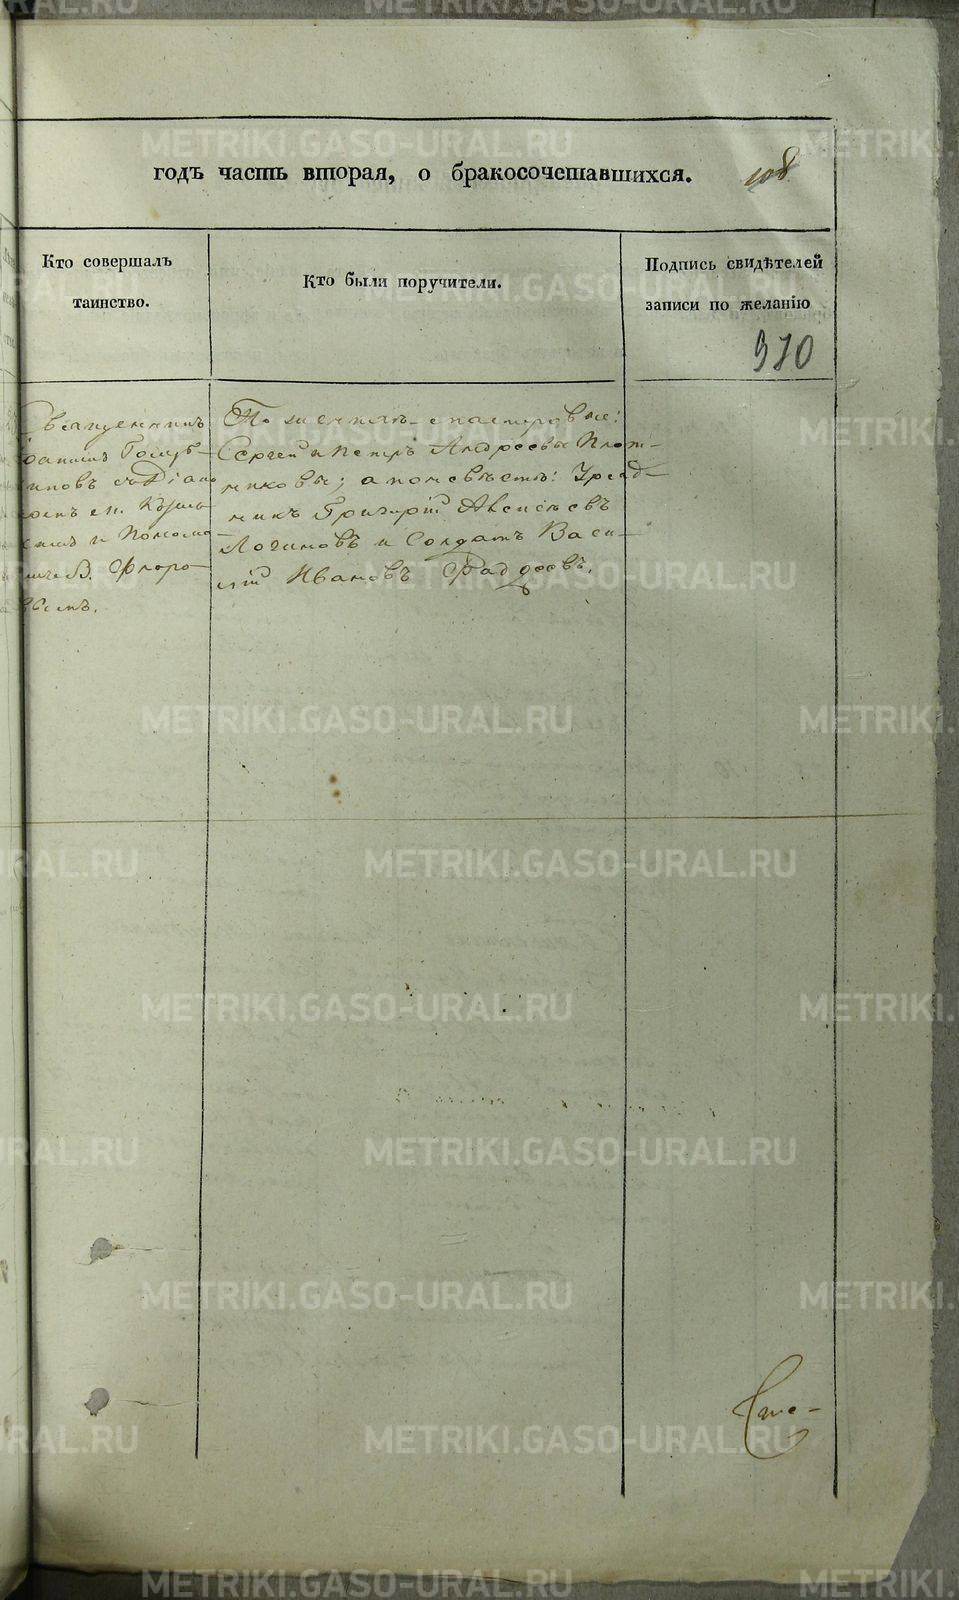 METRIKI.GASO-URAL.RU
годъ часть вторая, о бракосочетавшихся. 108
Кто совершалъ
таинство.
Кто были поручители.
Подпись свидѣтелей
записи по желанію
370
Священникъ
Іоаннъ Голуб-
Діако
и Пономо
В. Флоро-
вымъ.
По женихѣ мастеровые:
Сергей и Петръ Андреевы Плот-
никовы; а по невѣстѣ: Уряд-
никъ Григорій Алексѣевъ
Логиновъ и Солдатъ Васи-
лій Ивановъ Фаддеевъ.